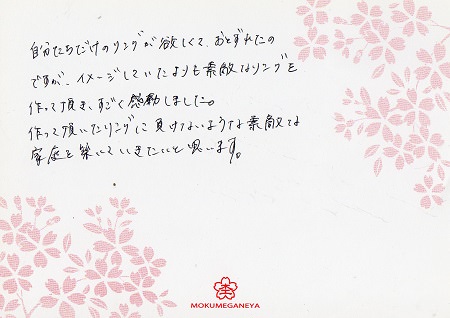 自分たちだけのリングが欲しくて、おとずれたの
ですが、イメージしていたよりも素敵なリングを
作って頂き、すごく感動しました。
作って頂いたリングに負けないような素敵な
家庭を築いていきたいと思います。
MOKUMEGANEYA